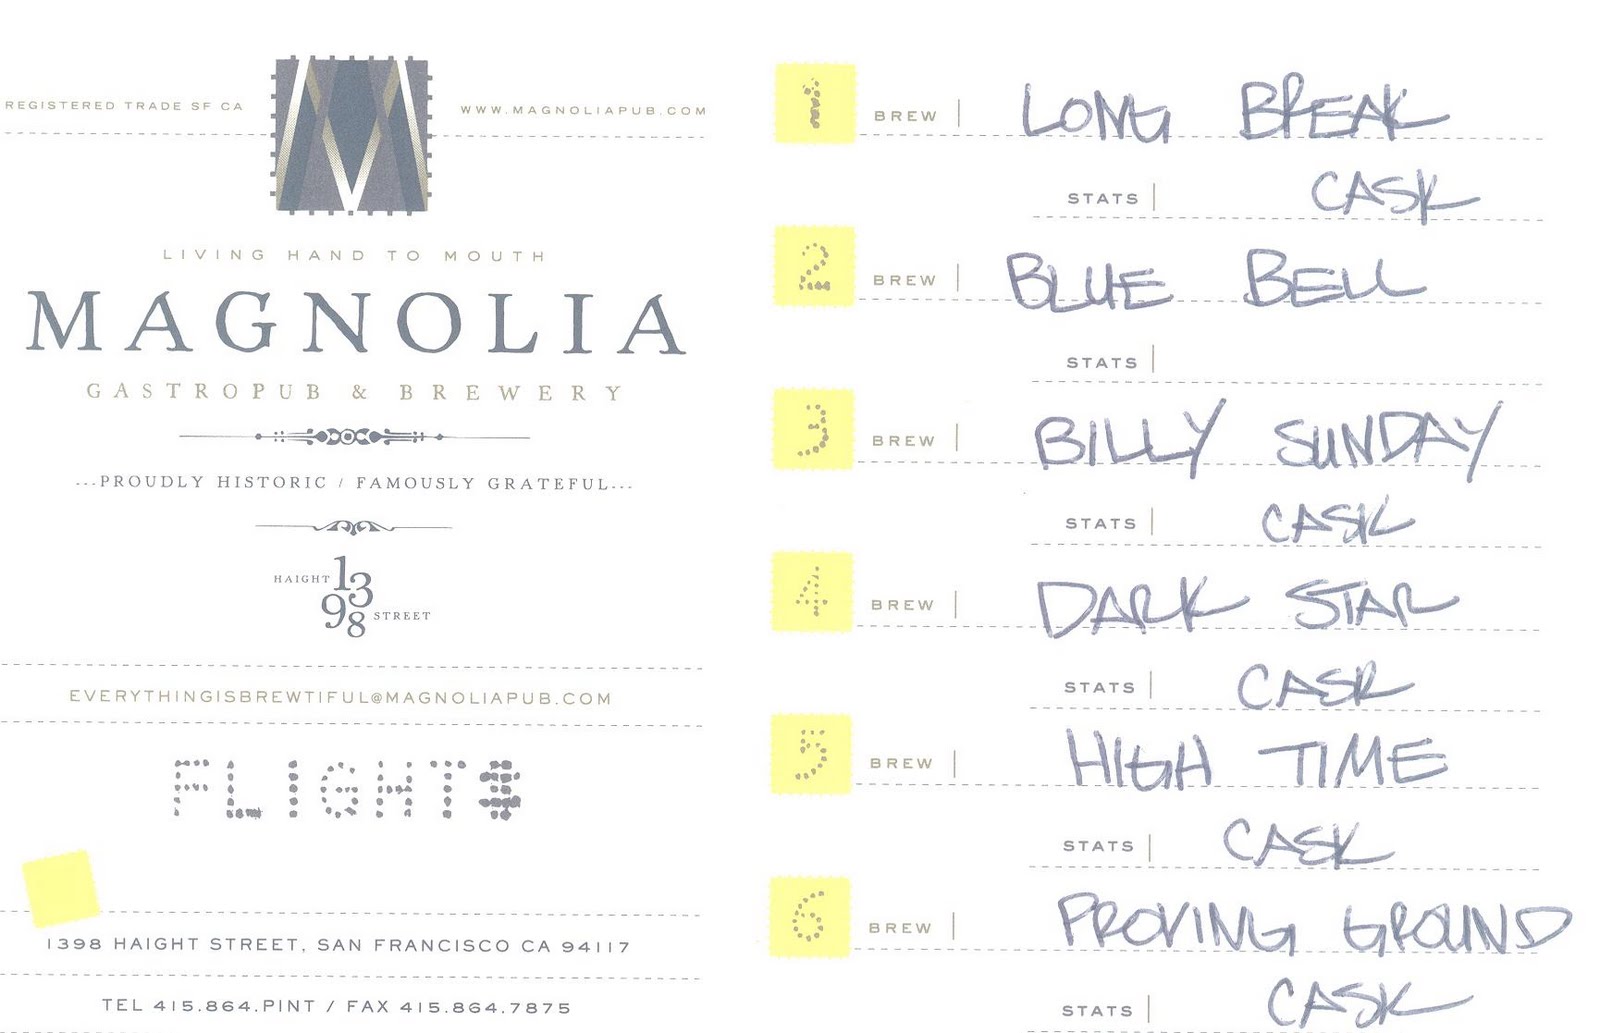 REGISTERED TRADE SF CA
WWW.MAGNOLIAPUB.COM
LIVING HAND TO MOUTH
MAGNOLIA
GASTROPUB & BREWERY
...PROUDLY HISTORIC / FAMOUSLY GRATEFUL...
HAIGHT 13
98 STREET
EVERYTHINGISBREWTIFUL@MAGNOLIAPUB.COM
FLIGHTS
1398 HAIGHT STREET, SAN FRANCISCO CA 94117
TEL 415.864.PINT / FAX 415.864.7875
1 BREW | LONG BREAK
STATS | CASK
2 BREW | BLUE BELL
STATS |
3 BREW | BILLY SUNDAY
STATS | CASK
4 BREW | DARK STAR
STATS | CASK
5 BREW | HIGH TIME
STATS | CASK
6 BREW | PROVING GROUND
STATS | CASK